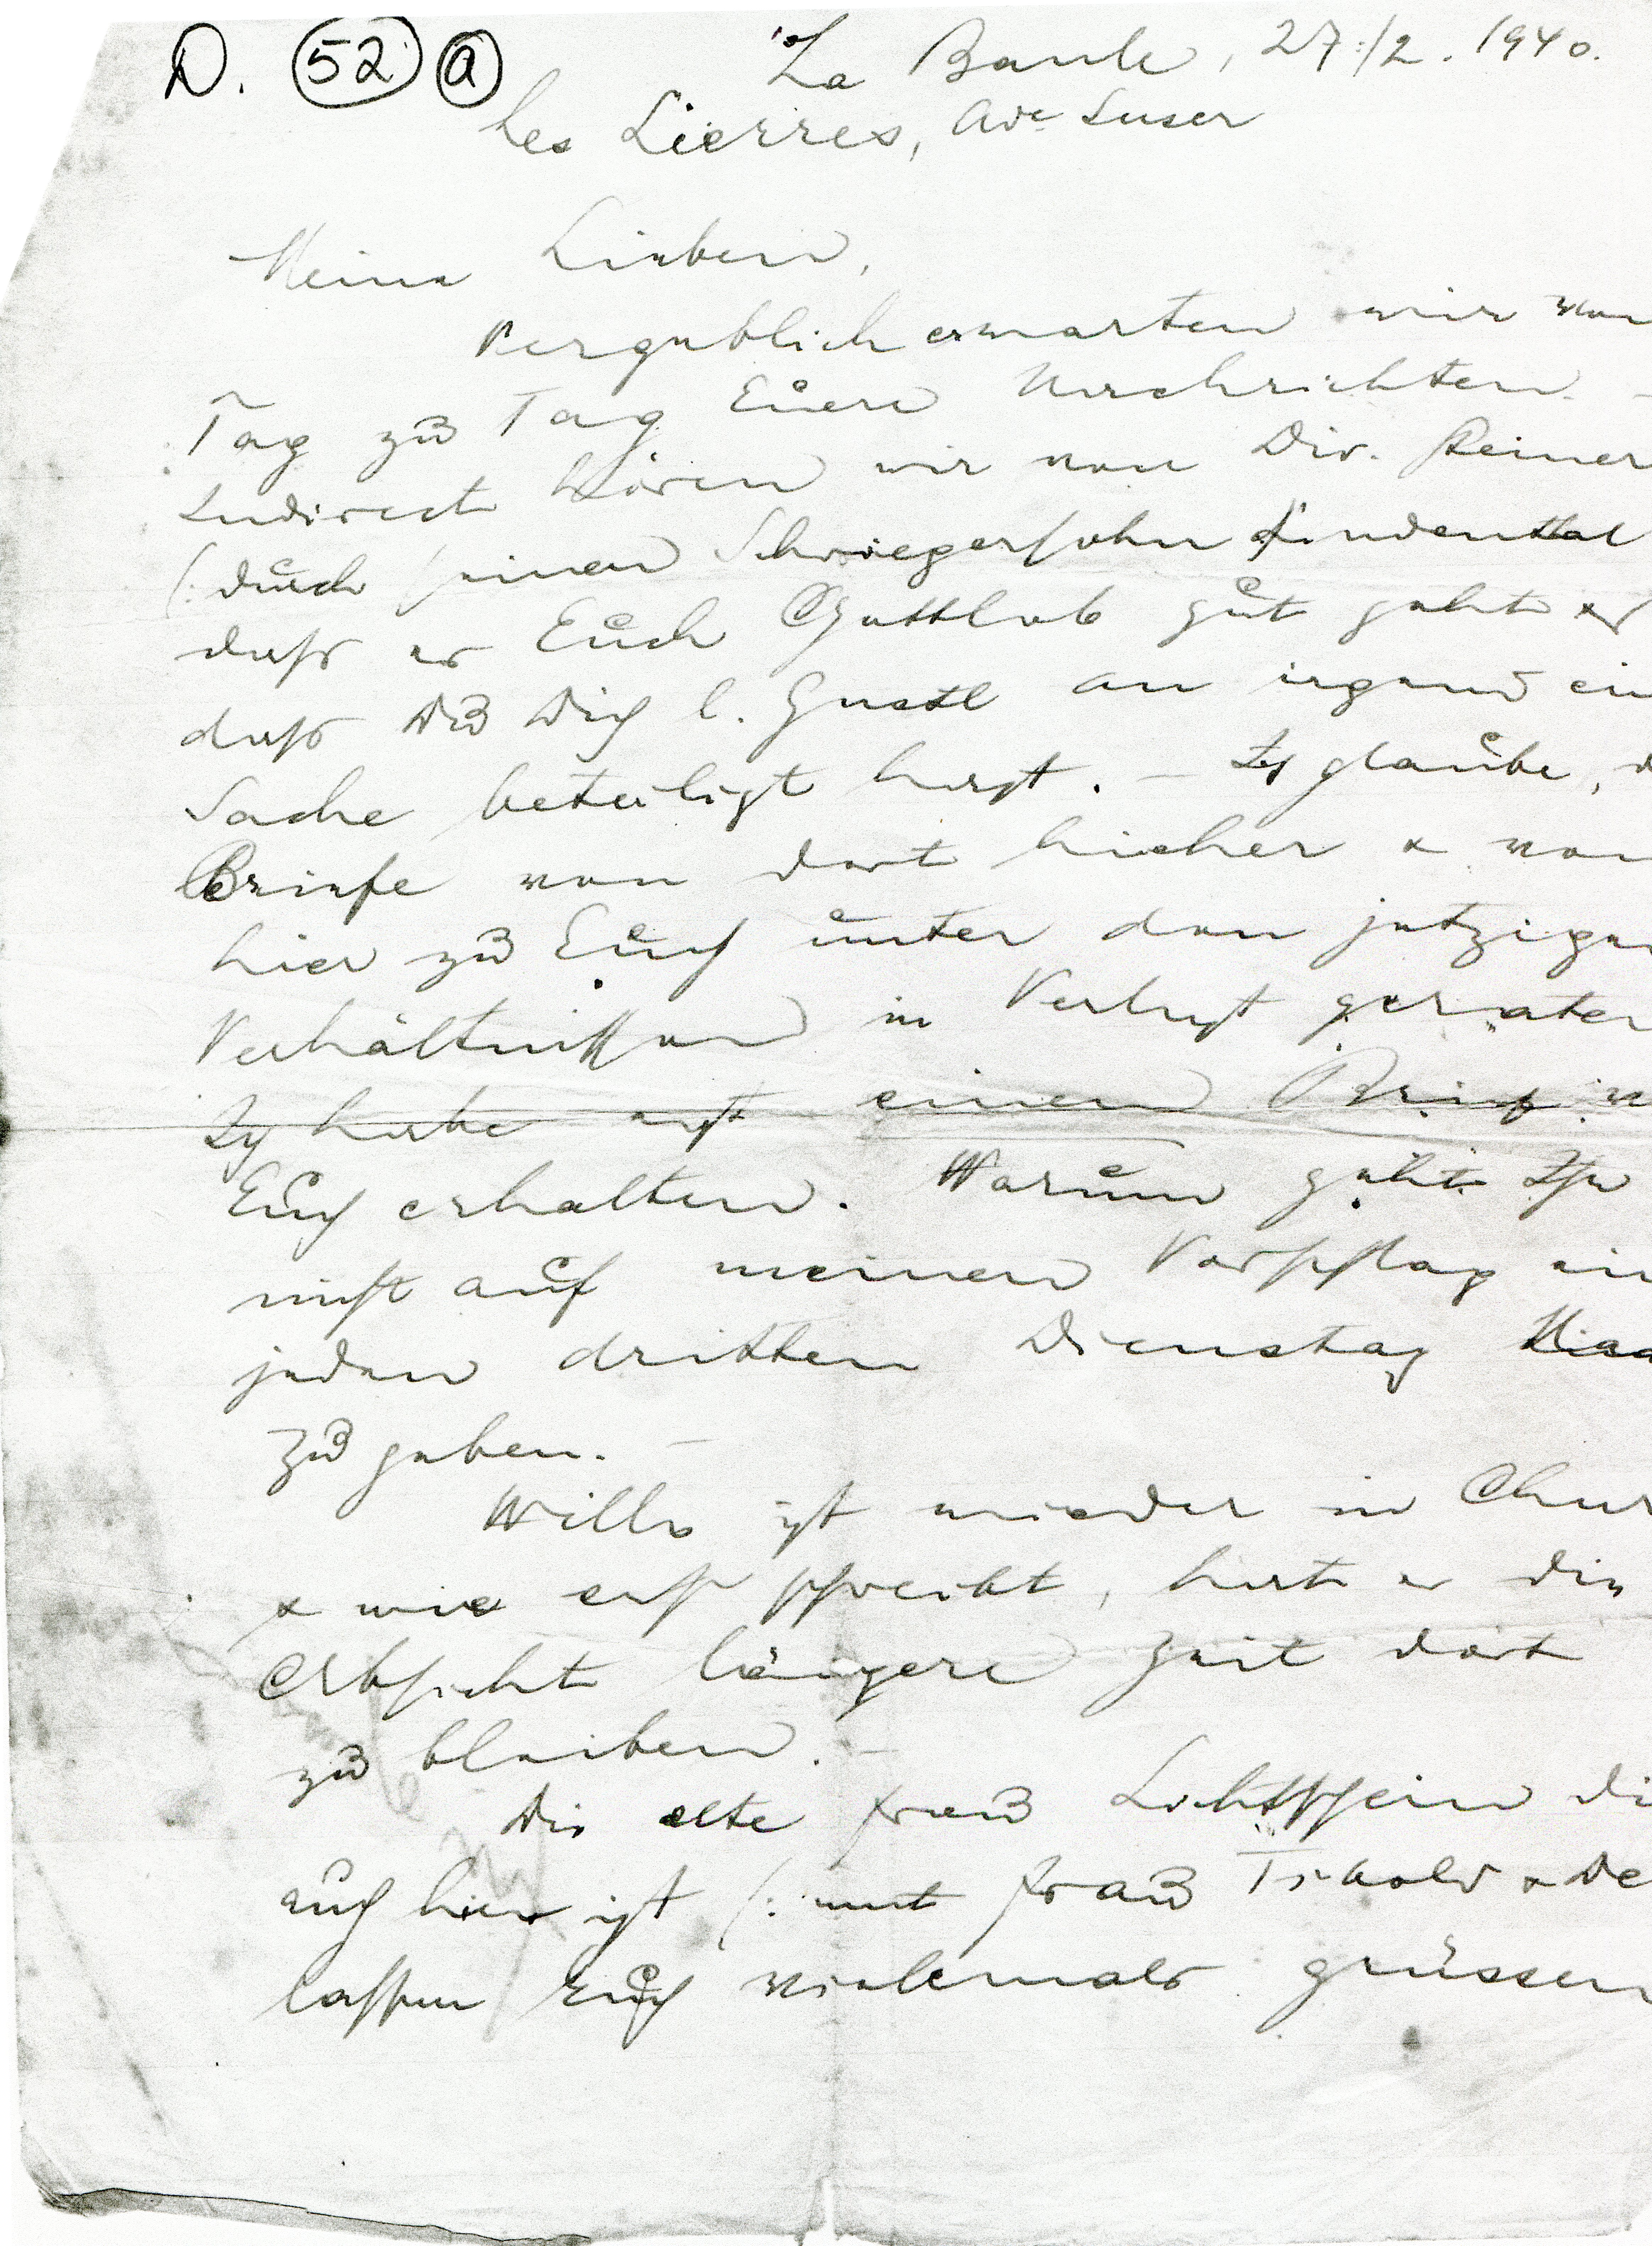 D. 52 a
La Baule, 27./2. 1940.
Les Lierres, Ave Suser
Meine Lieben,
Vergeblich erwarten wir von
Tag zu Tag Euere Nachrichten. -
Indirect hören wir von Dir. Reiner
(: durch seinen Schwiegersohn Lindenthal
daß es Euch Gottlob gut geht &
daß Du Dich l. Gustl an irgend ein
Sache beteiligt hast. - Ich glaube, d
Briefe von dort hieher & von
hier zu Euch unter den jetzigen
Verhältnissen in Verlust geraten
Ich habe erst einen Brief v
Euch erhalten. Warum geht Ihr
nicht auf meinen Vorschlag ein
jeden dritten Dienstag
zu geben. -
Willy ist wieder in Chur
& wie er schreibt, hat er die
Absicht längere Zeit dort
zu bleiben. -
Die alte Frau Lichtschein di
auch hier ist (: mit Frau
lassen Euch vielemals grüssen